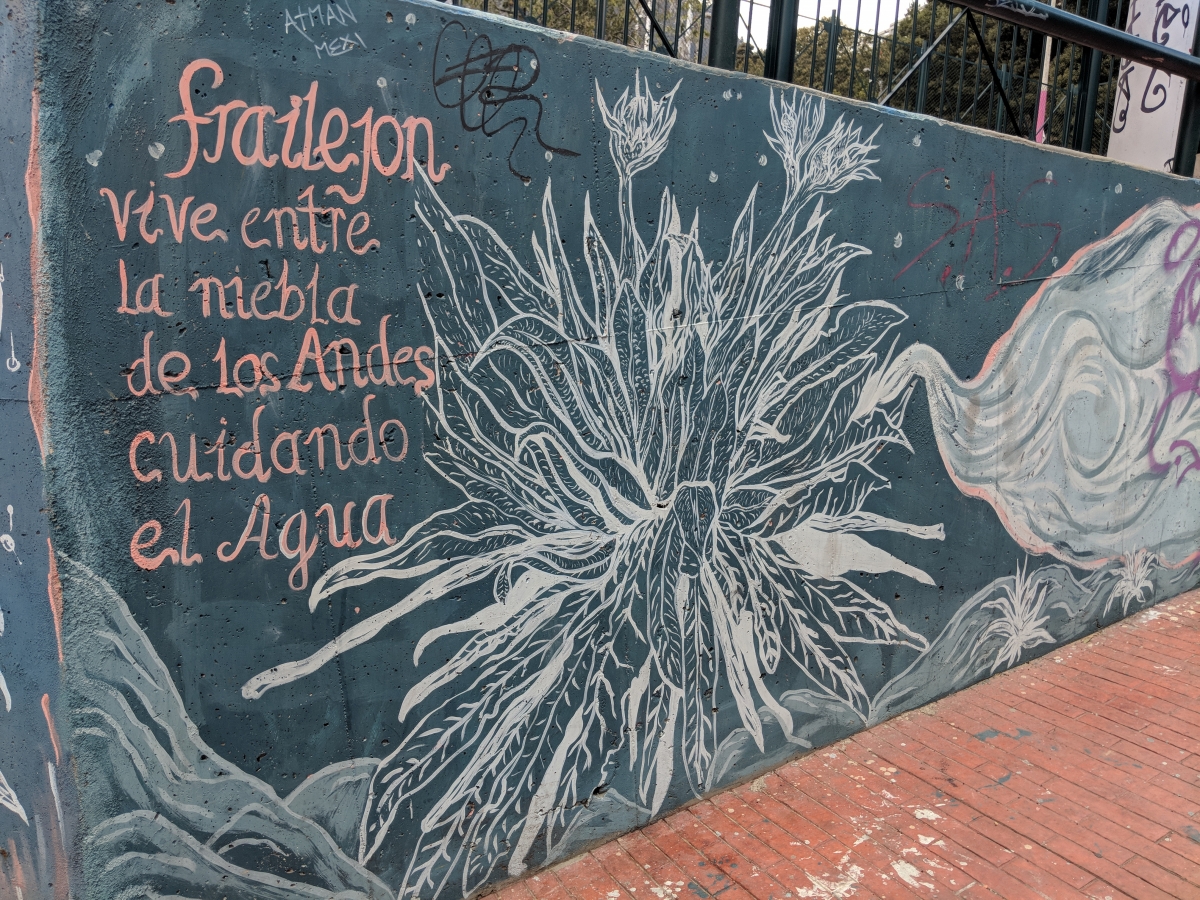 ATMAN
MEXI
frailejon
vive entre
la niebla
de los Andes
cuidando
el Agua
SAS